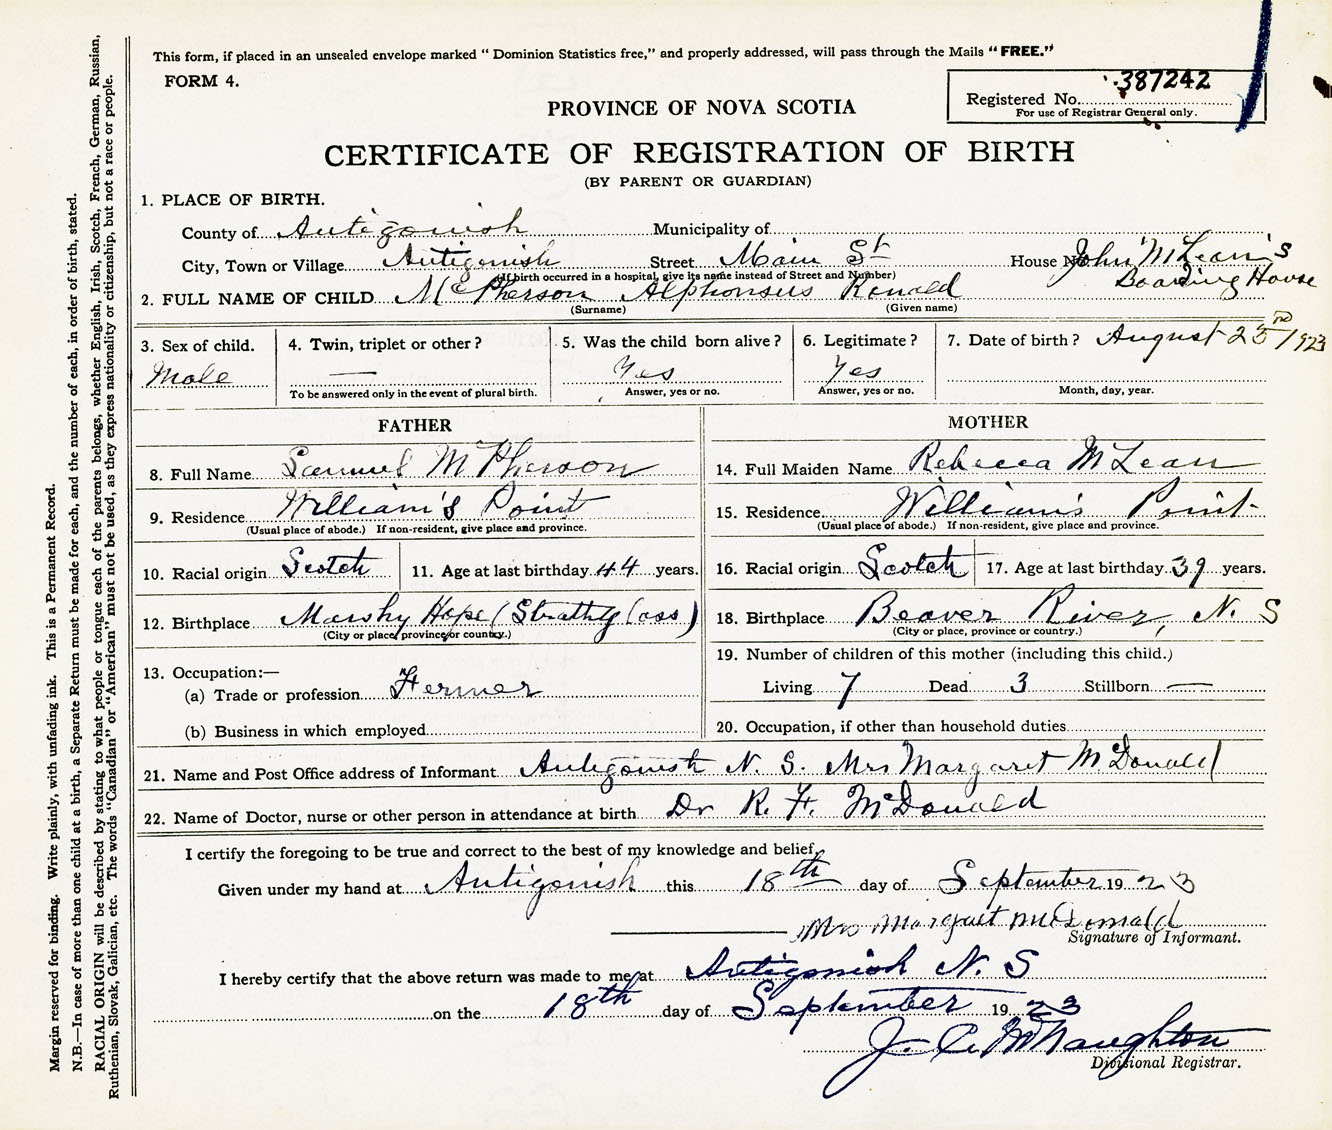 This form, if placed in an unsealed envelope marked " Dominion Statistics free," and properly addressed, will pass through the Mails "FREE."
FORM 4.
387242
Registered No.
For use of Registrar General only.
PROVINCE OF NOVA SCOTIA
CERTIFICATE OF REGISTRATION OF BIRTH
(BY PARENT OR GUARDIAN)
1. PLACE OF BIRTH.
County of Antigonish Municipality of
City, Town or Village Antigonish Street Main St House No. John McLean's
Boarding House
(If birth occurred in a hospital, give its name instead of Street and Number)
2. FULL NAME OF CHILD McPherson Alphonsus Ronald
(Surname) (Given name)
3. Sex of child. Male
4. Twin, triplet or other? —
To be answered only in the event of plural birth.
5. Was the child born alive? Yes
Answer, yes or no.
6. Legitimate? Yes
Answer, yes or no.
7. Date of birth? August 1923
Month, day, year.
FATHER
8. Full Name Samuel McPherson
9. Residence William's Point
(Usual place of abode.) If non-resident, give place and province.
10. Racial origin Scotch 11. Age at last birthday 44 years.
12. Birthplace Marshy Hope (Strathglass)
(City or place, province or country.)
13. Occupation:—
(a) Trade or profession Farmer
(b) Business in which employed
MOTHER
14. Full Maiden Name Rebecca McLean
15. Residence William's Point
(Usual place of abode.) If non-resident, give place and province.
16. Racial origin Scotch 17. Age at last birthday 39 years.
18. Birthplace Beaver River, N. S
(City or place, province or country.)
19. Number of children of this mother (including this child.)
Living 7 Dead 3 Stillborn —
20. Occupation, if other than household duties
21. Name and Post Office address of Informant Antigonish N. S. Mrs Margaret McDonald
22. Name of Doctor, nurse or other person in attendance at birth Dr R. F. McDonald
I certify the foregoing to be true and correct to the best of my knowledge and belief,
Given under my hand at Antigonish this 18th day of September 1923
Mrs Margaret McDonald
Signature of Informant.
I hereby certify that the above return was made to me at Antigonish N. S
on the 18th day of September 1923
J. C. McNaughton
Divisional Registrar.
Margin reserved for binding. Write plainly, with unfading ink. This is a Permanent Record.
N.B.—In case of more than one child at a birth, a Separate Return must be made for each, and the number of each, in order of birth, stated.
RACIAL ORIGIN will be described by stating to what people or tongue each of the parents belongs, whether English, Irish, Scotch, French, German, Russian,
Ruthenian, Slovak, Galician, etc. The words "Canadian" or "American" must not be used, as they express nationality or citizenship, but not a race or people.